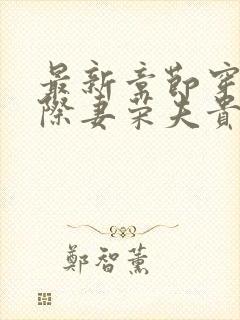 最新章節穿
際妻榮夫貴
鄭智薰